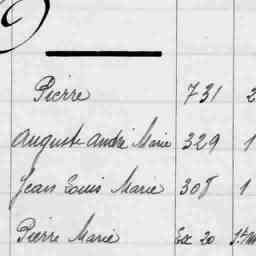 Pierre 731 2
Auguste André Marie 329 1
Jean Louis Marie 308 1
Pierre Marie 20